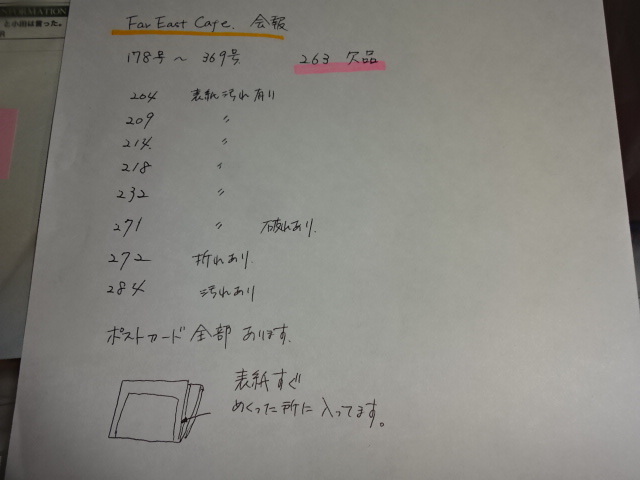 INFORMATION
と小田は言った。
Far East Cafe. 会報
178号 ～ 369号 263 欠品
204 表紙汚れ有り
209 〃
214 〃
218 〃
232 〃
271 〃 破れあり.
272 折れあり.
284 汚れあり
ポストカード 全部 あります.
表紙すぐ
めくった所に入ってます。